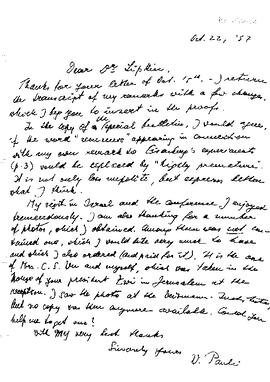 Oct. 22, '57
Dear Dr. Lipkin,
Thanks for your letter of Oct. 15th. - I return
the transcript of my remarks with a few changes,
which I beg you to insert in the proofs.
In the copy of the special bulletin, I would
if the word " " appearing in connection
with my own remark to experiments
(p. 3) would be replaced by "highly premature".
It is not only less impolite, but expresses better
what I think.
My visit in Israel and the conference I enjoyed
tremendously. I am also thanking for a number
of photos, which I obtained. Among them was not con-
tained one, which I would like very much to have
and which I also ordered (and paid for it). It is the one
of Mrs. C. S. Wu and myself, which was taken in the
house of your president Zwi in Jerusalem at the
reception. I saw the photo at the Weizmann-
but no copy was then anymore available. Could you
help me to get one?
With my very best thanks
Sincerely yours
W. Pauli